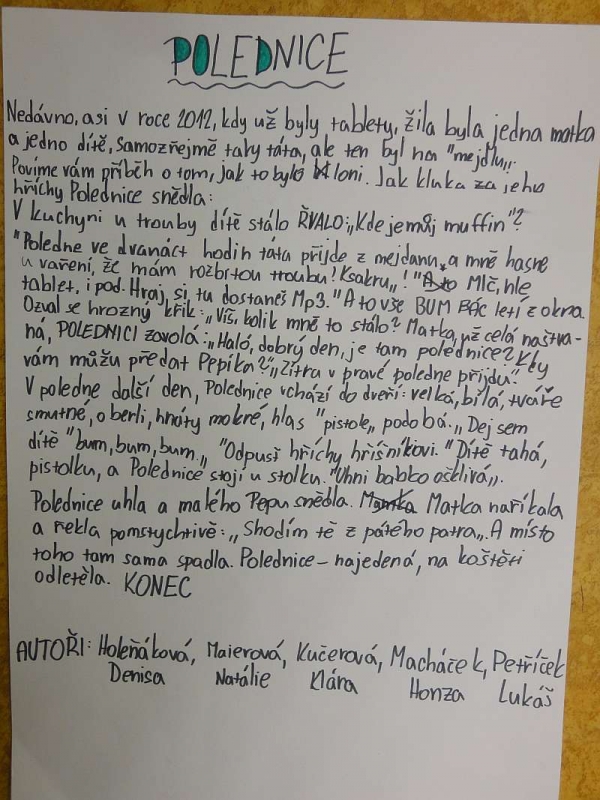 POLEDNICE
Nedávno, asi v roce 2012, kdy už byly tablety, žila byla jedna matka
a jedno dítě, samozřejmě taky táta, ale ten byl na "mejdlu".
Povíme vám příběh o tom, jak to bylo loni. Jak kluka za jeho
hříchy Polednice snědla:
V kuchyni u trouby dítě stálo ŘVALO: „Kde je můj muffin"?
"Poledne ve dvanáct hodin táta přijde z mejdanu, a mně hasne
u vaření, že mám rozbitou troubu! Ksakru„!" Mlč, hle
tablet, i pod. Hraj, si tu dostaneš Mp3." A to vše BUM BÁC letí z okna.
Ozval se hrozný křik: „Víš, kolik mně to stálo? Matka, už celá naštva-
ná, POLEDNICI zavolá: „Haló, dobrý den, je tam polednice? Kdy
vám můžu předat Pepíka?" „Zítra v pravé poledne přijdu".
V poledne další den, Polednice vchází do dveří: velká, bílá, tváře
smutné, o berli, hnáty mokré, hlas "pistole„ podobá. „Dej sem
dítě "bum, bum, bum„ "Odpusť hříchy hříšníkovi." Dítě tahá,
pistolku, a Polednice stojí u stolku. "Uhni babko ošklivá„.
Polednice uhla a malého Pepu snědla. Matka naříkala
a řekla pomstychtivě: „Shodím tě z pátého patra„. A místo
toho tam sama spadla. Polednice - najedená, na koštěti
odletěla. KONEC
AUTOŘI: Holeňáková, Maierová, Kučerová, Macháček, Petříček
Denisa Natálie Klára Honza Lukáš